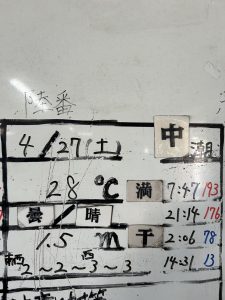 陸番
4/27(土) 中潮
28℃ 満 7:47 193
曇/晴 21:14 176
1.5m 干 2:06 78
南西 2~2~西3~3 14:31 13